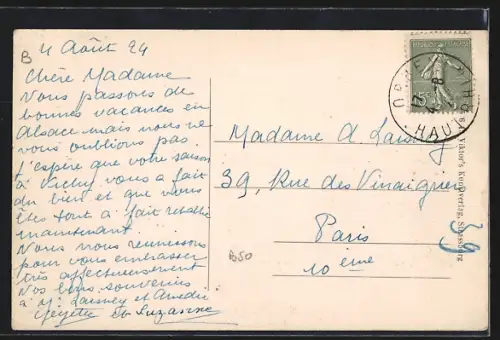 B
4 Août 24
Chère Madame
Vous passons de
bonnes vacances en
Alsace mais nous ne
vous oublions pas
J'espère que votre saison
à Vichy vous a fait
du bien et que vous
êtes tout à fait rétablie
maintenant
Nous nous réunissons
pour vous embrasser
très affectueusement
Nos bons souvenirs
à Mr Laisney et André
et Suzanne
Madame A. Laisney
39, Rue des Vinaigriers
Paris
10 ème
B50
39
15c
17
4 - 8
HAUT-RHIN
Viktor's Kunstverlag, Strassburg